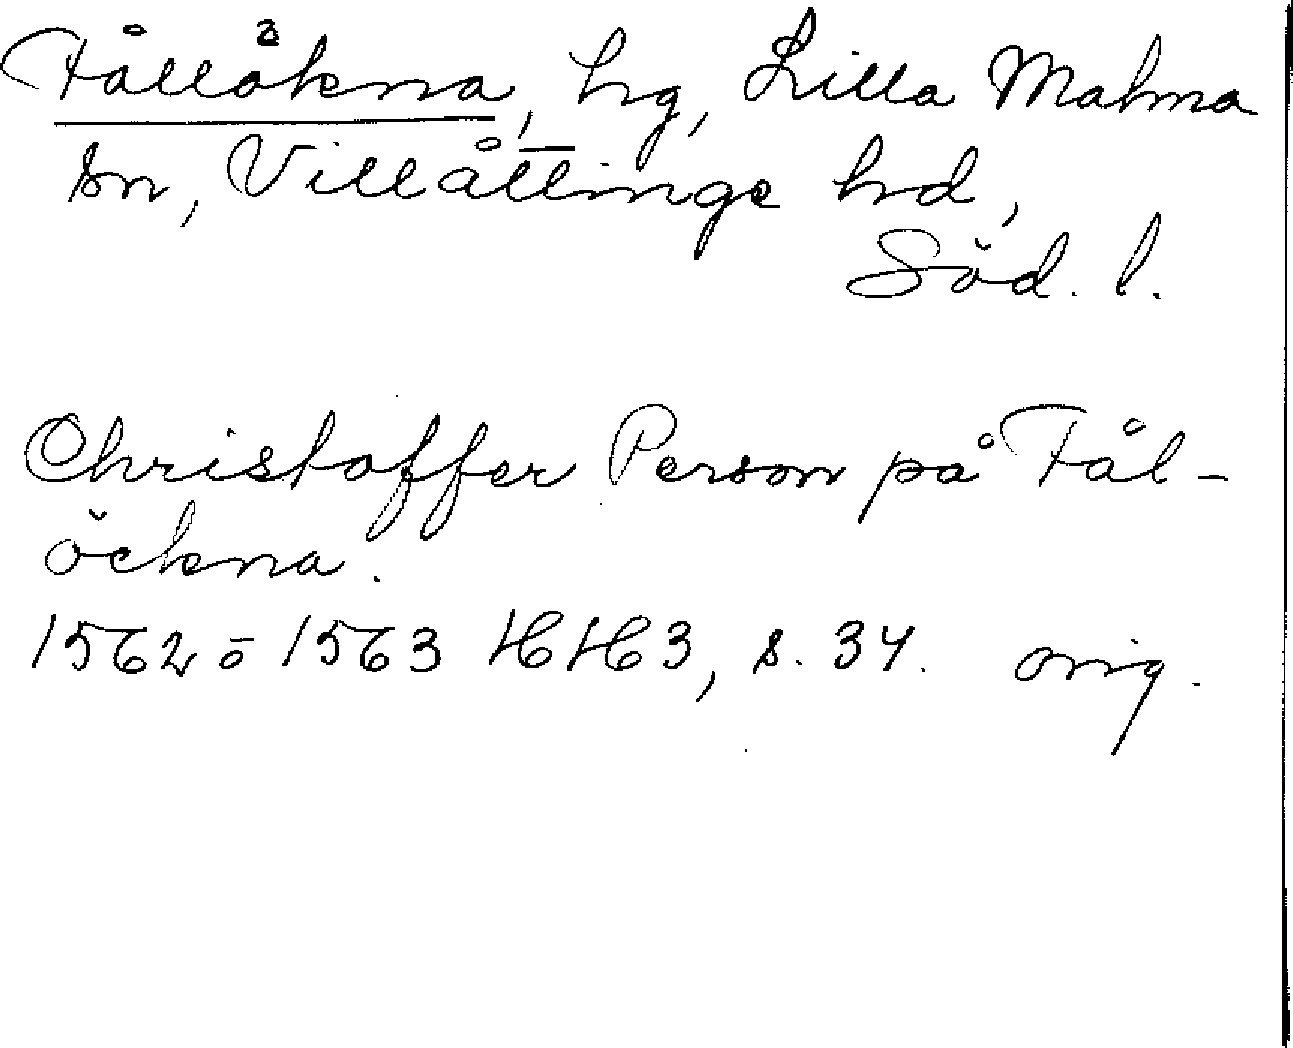 Fållökna, hg, Lilla Malma
sn, Villåttinge hd,
Söd. l.
Christoffer Person på Fål-
öckna.
1562 o 1563 HH3, s. 34. orig.